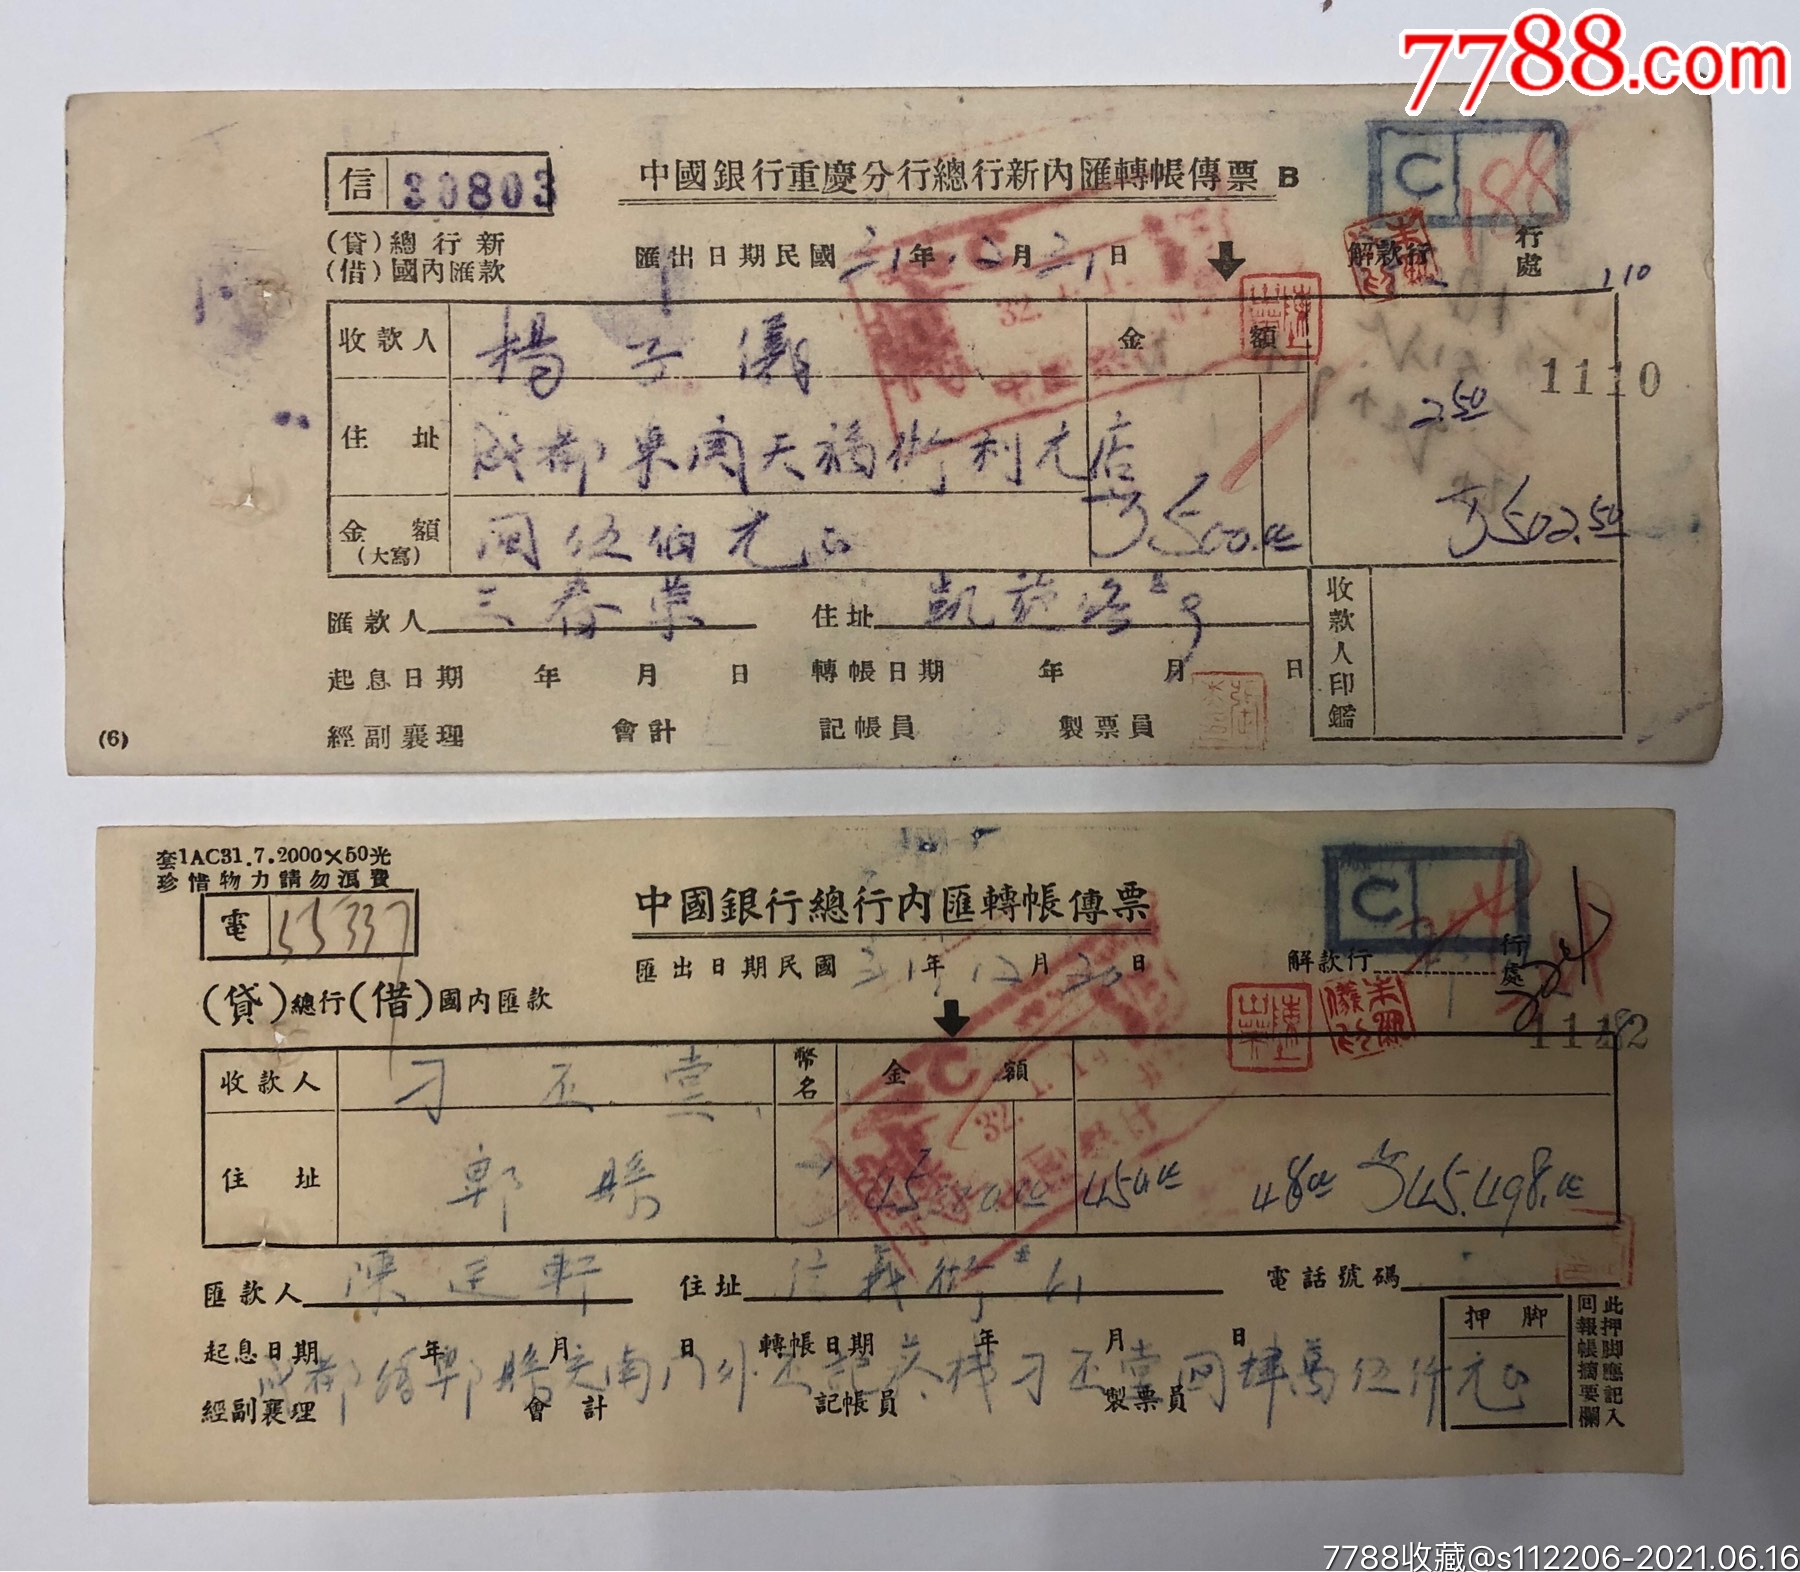 7788.com
中國銀行重慶分行總行新內匯轉帳傳票 B
信 30803
C 188
(貸)總行新
(借)國內匯款
匯出日期民國 31年12月31日
解款行 行處
110
收款人 楊子儀 金額
1110
住址 成都東南天福街利元店
2.50
金額(大寫) 國伍佰元正 500.00 502.50
匯款人 王春榮 住址 凱旋路 號
收款人印鑑
起息日期 年 月 日 轉帳日期 年 月 日
經副襄理 會計 記帳員 製票員
(6)
32.1.1
套1AC31.7.2000×50光
珍惜物力請勿濫費
電 55337
中國銀行總行內匯轉帳傳票
C
匯出日期民國 31年12月30日
解款行 行處
(貸)總行(借)國內匯款
1112
收款人 刁丕堂 幣名 金額
住址 郫縣 454 48 45,498.00
32.1.1
匯款人 陳廷軒 住址 信義街 電話號碼
押脚
此押脚應記入
回報帳摘要欄
起息日期 年 月 日 轉帳日期 年 月 日
成都 郫縣 南門外 刁丕堂國肆萬伍仟元正
經副襄理 會計 記帳員 製票員
7788收藏@s112206-2021.06.16